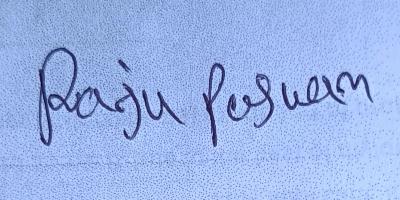 Raju Paswan